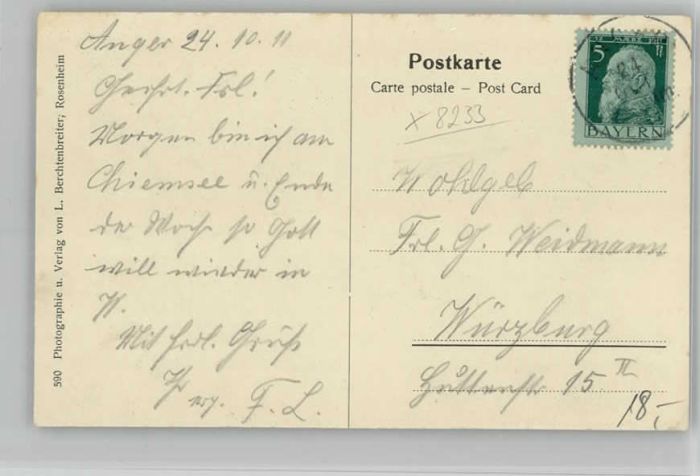 Anger 24. 10. 11
Geehrt. Frl!
Morgen bin ich am
Chiemsee u. Ende
der Woche so Gott
will wieder in
W.
Mit frdl. Gruß
Ihr erg. F. L.
590 Photographie u. Verlag von L. Berchtenbreiter, Rosenheim
Postkarte
Carte postale – Post Card
x 8233
5
BAYERN
Wohlgeb
Frl. G. Weidmann
Würzburg
Huttenstr 15 II
18,-